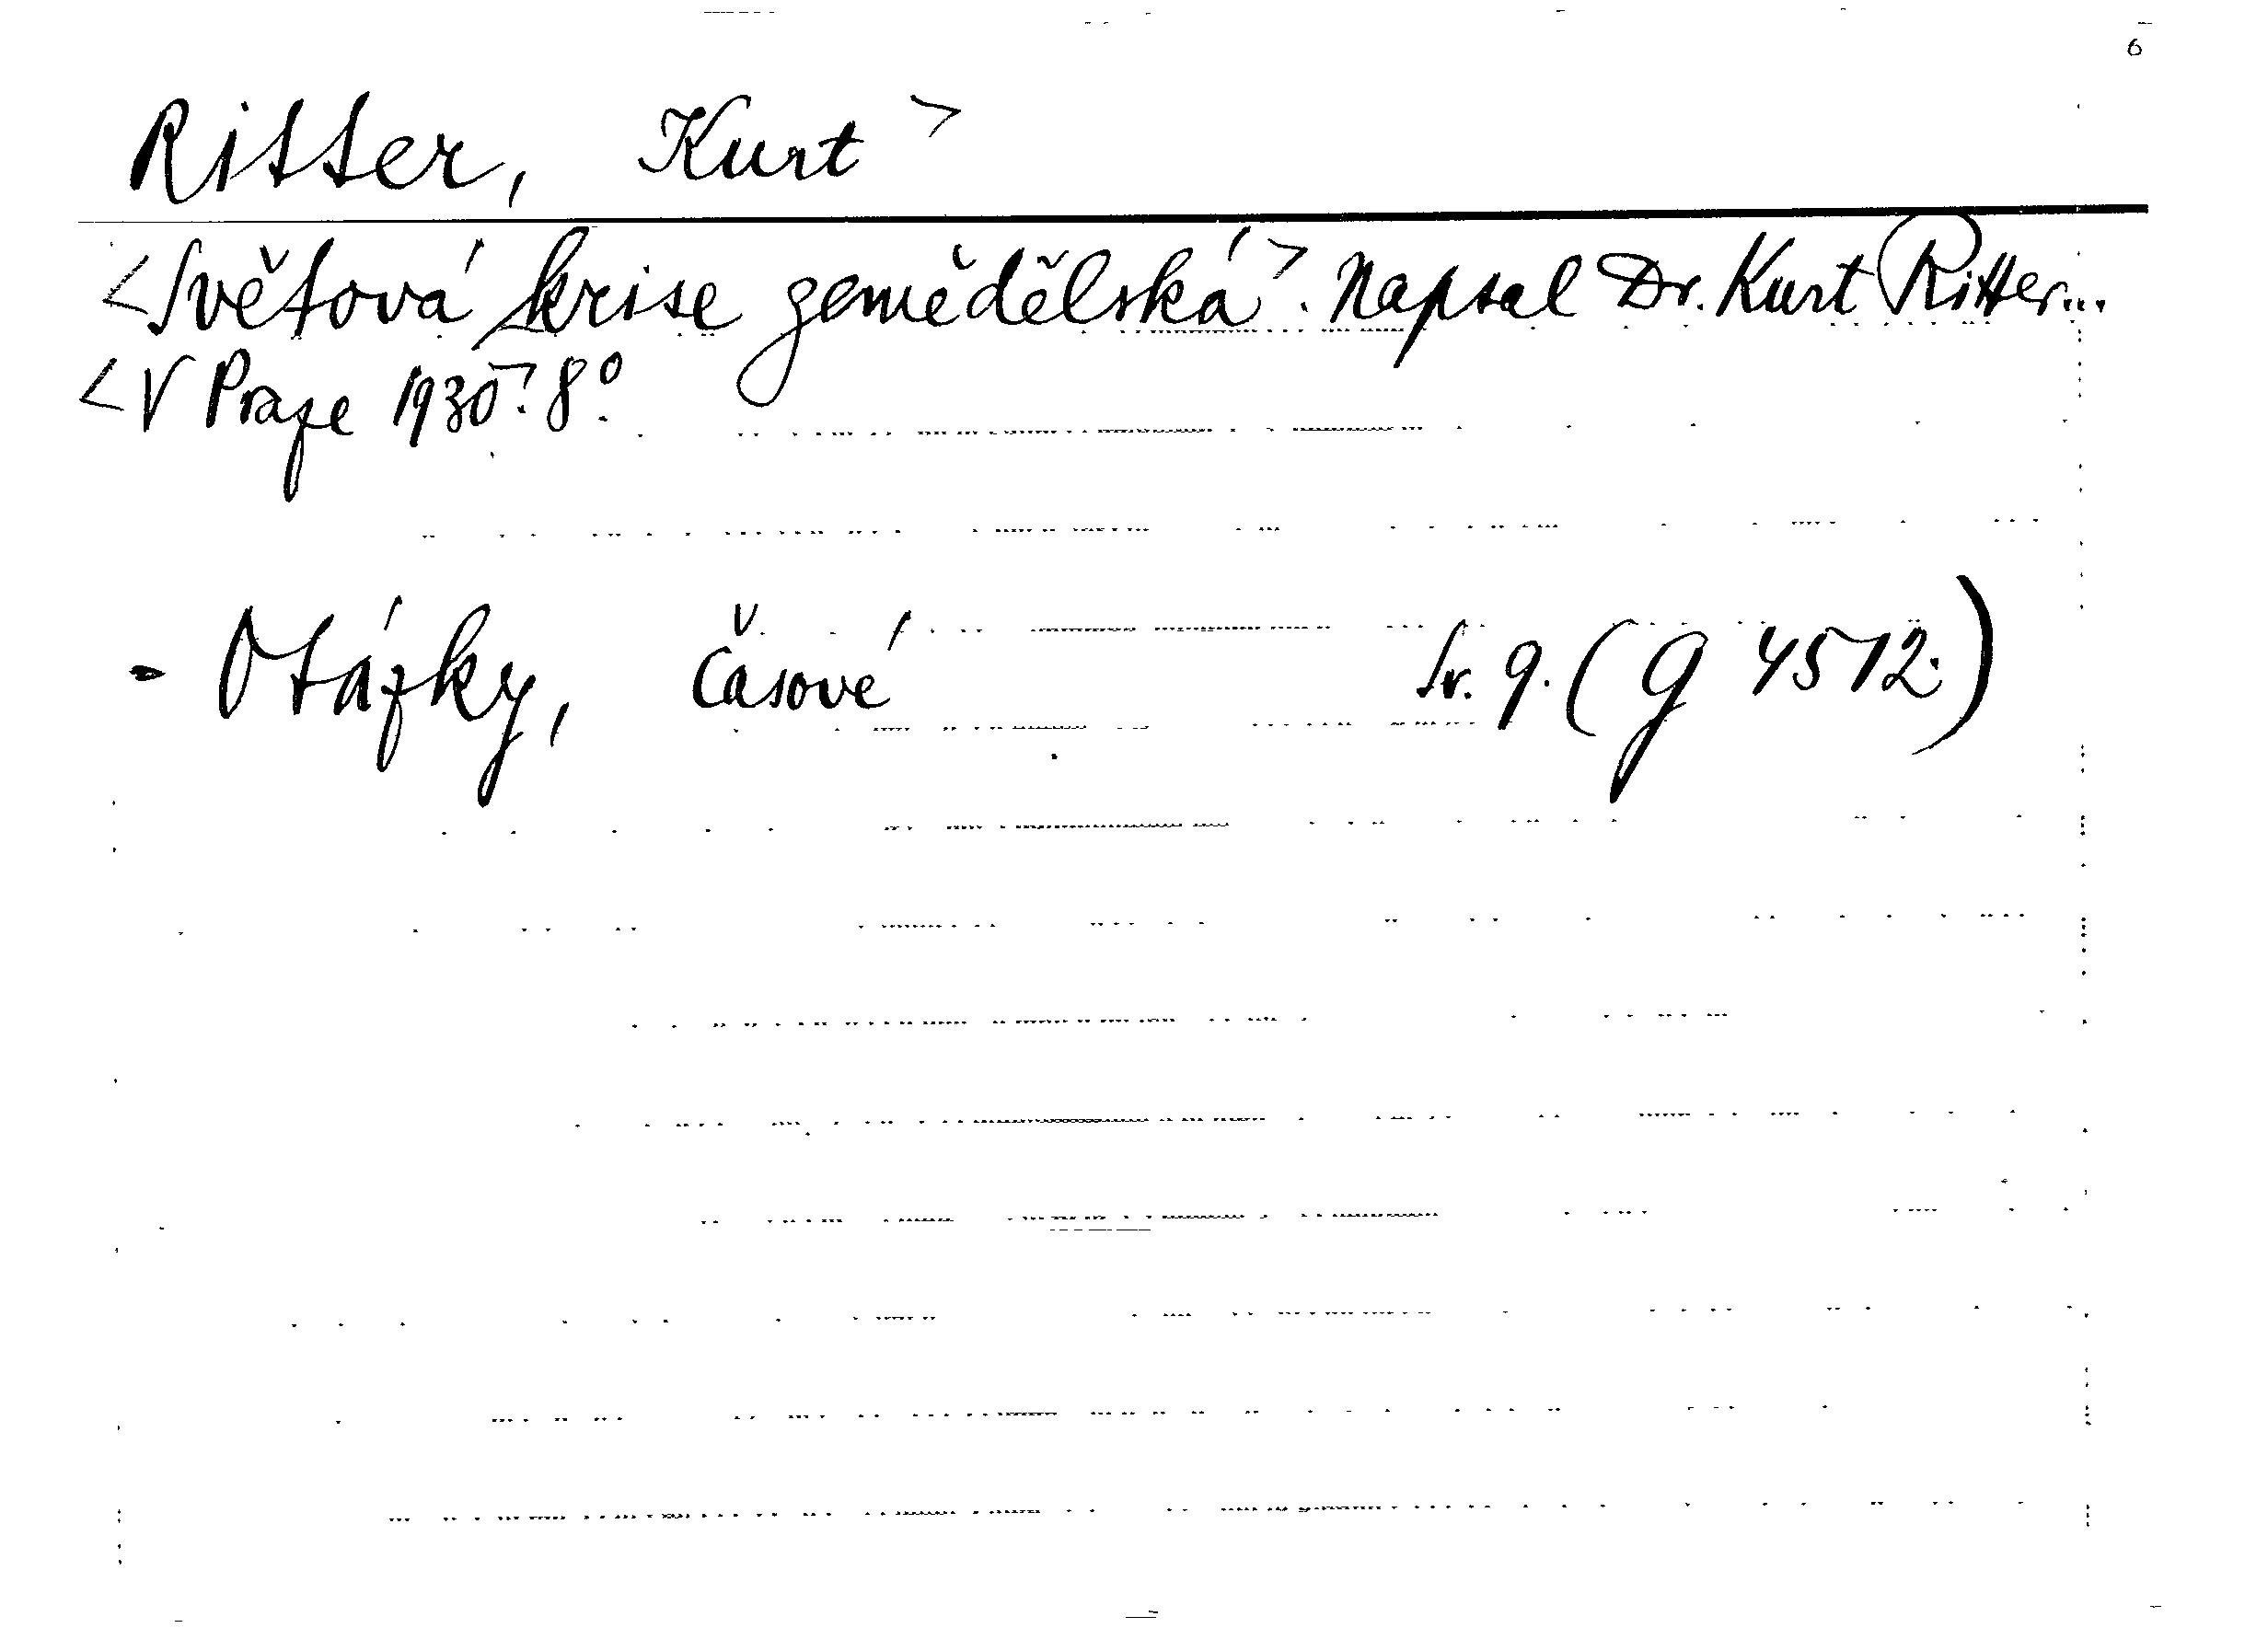 6
Ritter, Kurt >
<Světová krise zemědělská>. Napsal Dr. Kurt Ritter...
<V Praze 1930>. 8°.
- Otázky, časové Sv. 9. (g 4512.)